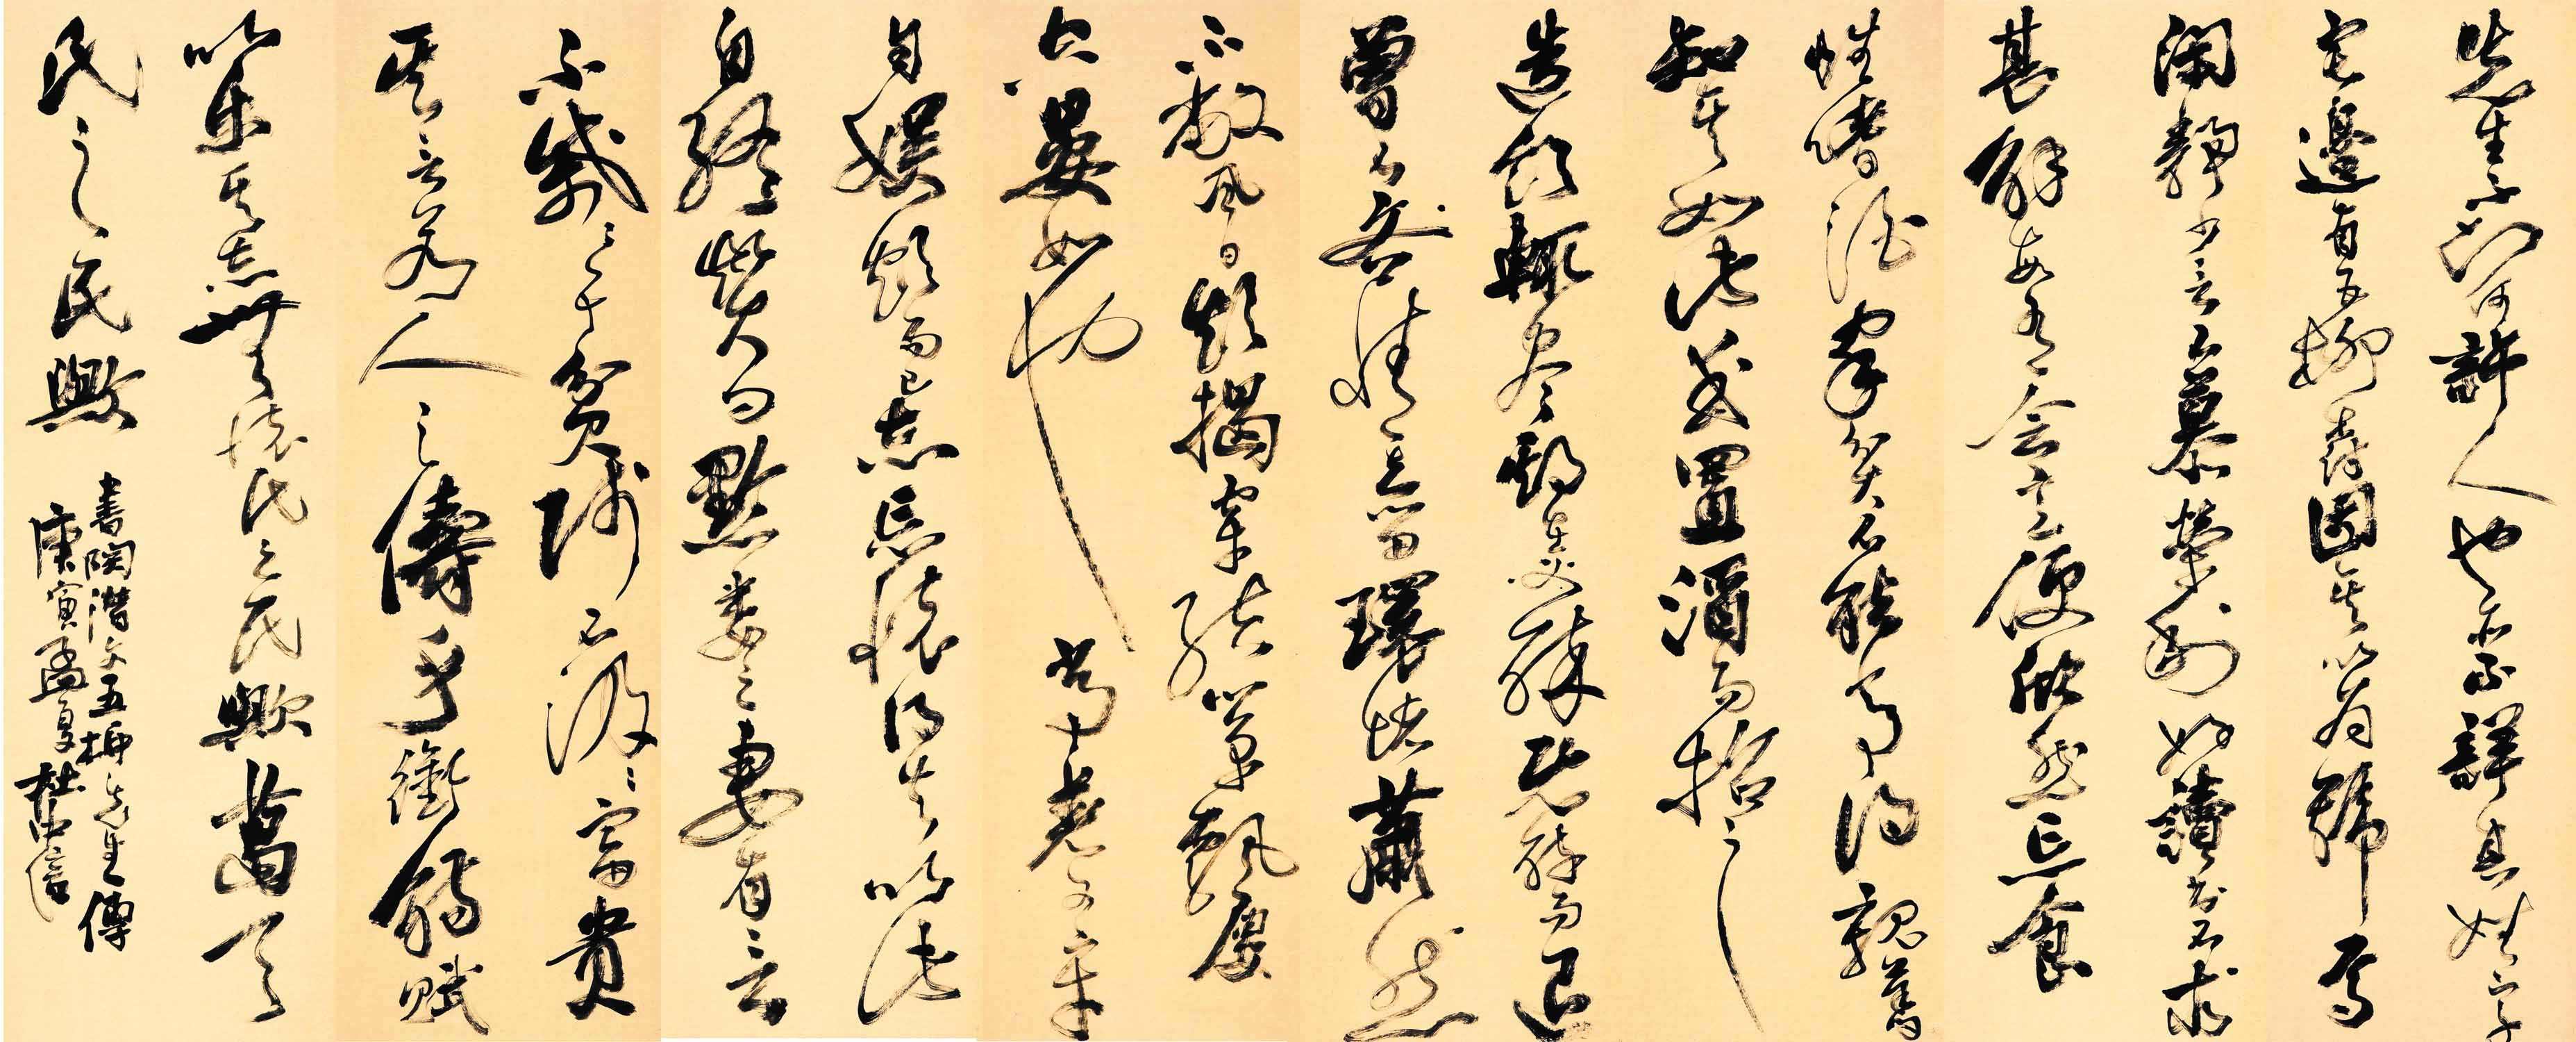 先生不知何許人也亦不詳其姓字
宅邊有五柳樹因其以為號焉
閑靜少言不慕榮利好讀書不求
甚解每有会意便欣然忘食
性嗜酒家貧不能常得親舊
知其如此或置酒而招之
造飲輒尽期在必醉既醉而退
曾不吝情去留環堵蕭然
不蔽風日短褐穿結簞瓢屢
空晏如也常著文章
自娛頗示己志忘懷得失以此
自終贊曰黔婁之妻有言
不戚々于貧賤不汲々富貴
其言若人之儔乎銜觴賦
以樂其志無懷氏之民歟葛天
氏之民歟
書陶潛文五柳先生傳
庚寅孟夏杜中信